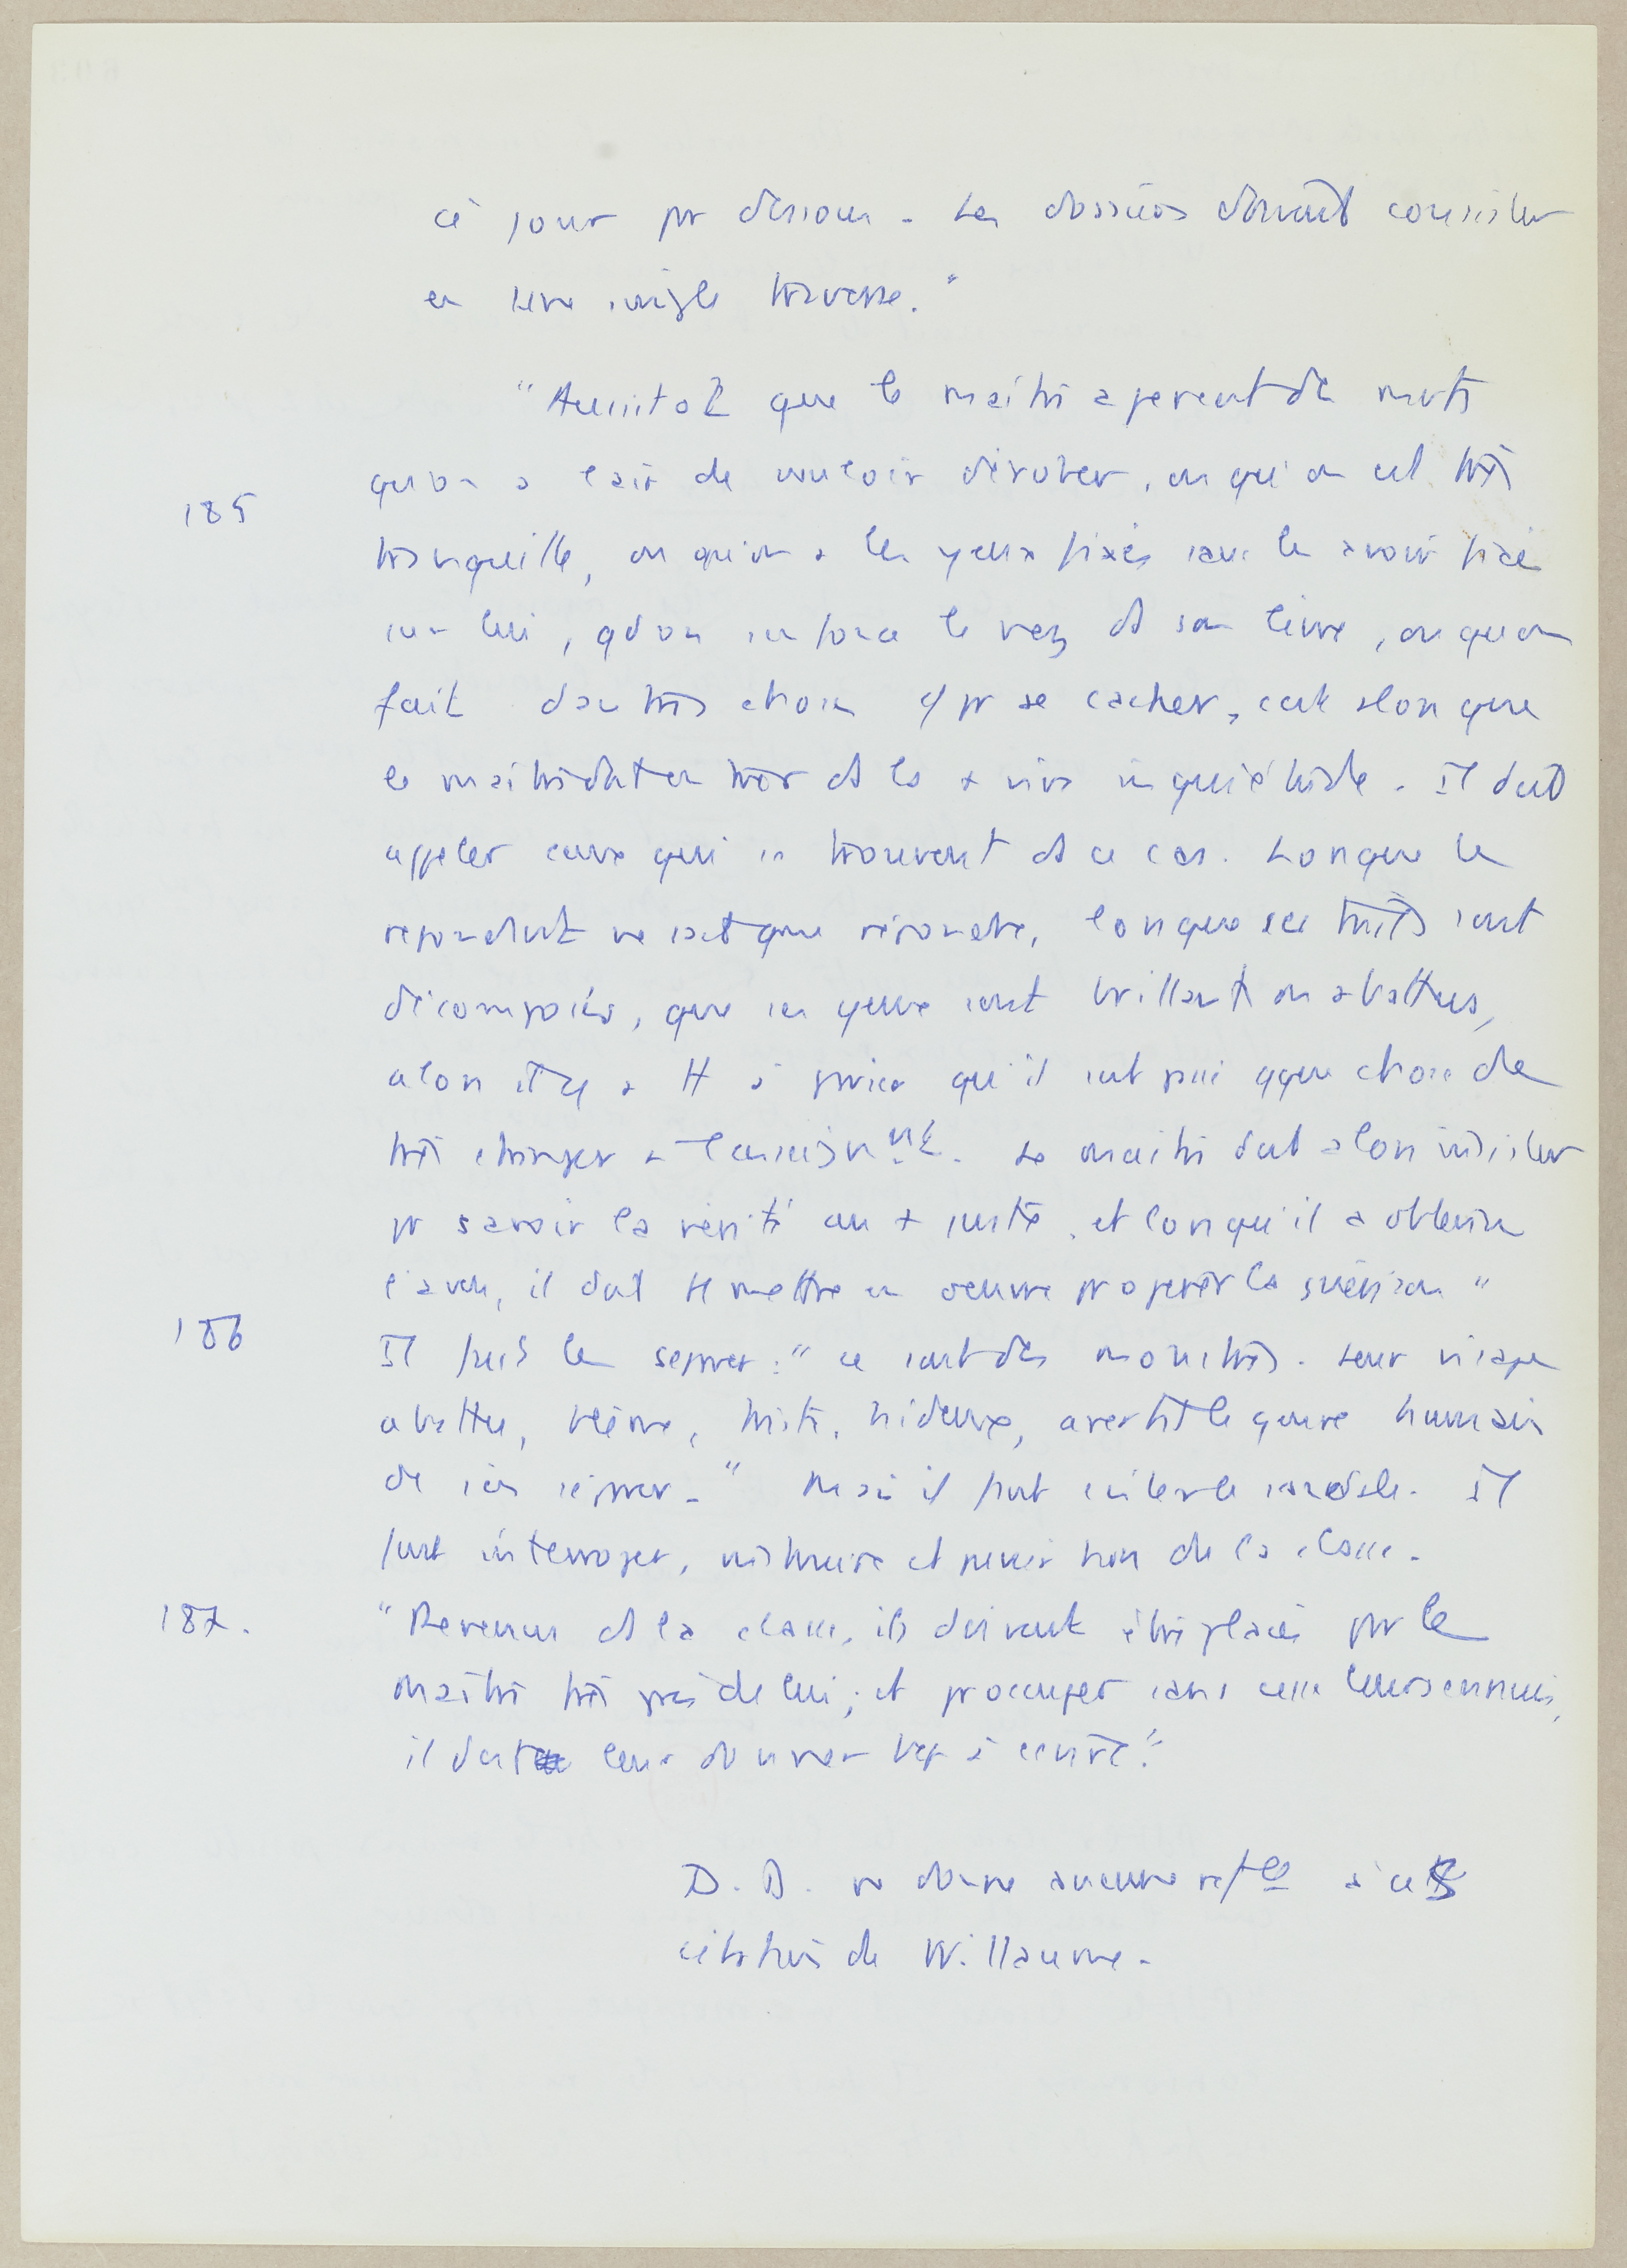 ce jour par dessous - Les dossiers doivent consister
en une simple traverse."
"Aussitôt que le maître aperçoit des mvts
185
qu'on a l'air de vouloir dérober, ou qu'on est très
tranquille, ou qu'on a les yeux fixés sans les avoir fixés
sur lui, qd on enfonce le nez ds son livre, ou qu'on
fait d'autres choses pr se cacher, c'est alors que
le maître doit entrer ds la + vive inquiétude. Il doit
appeler ceux qui se trouvent ds ce cas. Lorsque le
répondant ne sait que répondre, lorsque ses traits sont
décomposés, que ses yeux sont brillants ou abattus,
alors il y a tt à parier qu'il est puni qque chose de
très étranger à l'enseignnt. Le maître doit alors insister
pr savoir la vérité au + juste, et lorsqu'il a obtenu
l'aveu, il doit tt mettre en oeuvre pr opérer la guérison"
186
Il faut les séparer : "ce sont des monstres. Leur visage
abattu, blême, triste, hideux, avertit le genre humain
de s'en séparer-" Mais il faut éviter le scandale. Il
faut interroger, instruire et punir hors de la classe.
187.
"Revenus ds la classe, ils doivent être placés par le
maître très près de lui; et pr occuper sans cesse leurs ennuis,
il doit leur donner bcp à écrire."
D. D. ne donne aucune réfce à ces
citations de Willaume.